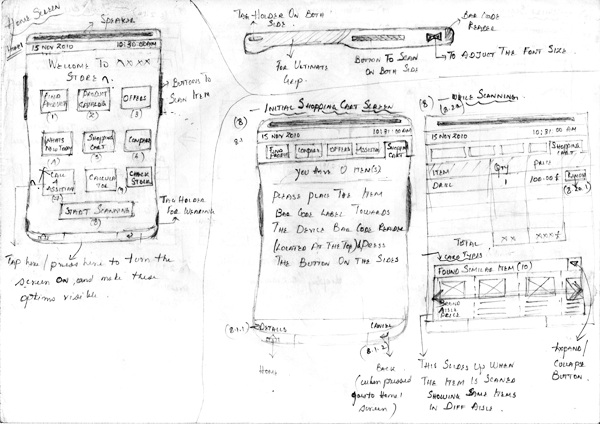 HOME SCREEN
SPEAKER
15 NOV 2010 10:30:00AM
WELCOME TO XXXX
STORE
FIND PRODUCT
(1)
PRODUCT CATALOG
(2)
OFFERS
(3)
WHATS NEW TODAY
(4)
SHOPPING CART
(5)
COMPARE
(6)
CALL 4 ASSISTANT
CALCULATOR
CHECK STOCK
START SCANNING
(8)
BUTTONS TO
SCAN ITEM
TAG HOLDER
FOR WEARING
TAP here / press here to turn the
screen ON, and make these
options visible.
TAG HOLDER ON BOTH
SIDE
BAR CODE
READER
FOR ULTIMATE
Grip
BUTTON TO SCAN
ON BOTH SIDE
TO ADJUCT THE FONT SIZE
(8) INITIAL SHOPPING CART SCREEN
8.1
15 NOV 2010 10:31:00 AM
FIND PRODUCT
COMPARE
OFFERS
ASSISTAN
SHOPPING CART
YOU HAVE 0 ITEM(S)
PLEASE PLACE THE ITEM
BAR CODE LABEL TOWARDS
THE DEVICE BAR CODE READER
(LOCATED AT THE TOP) & PRESS
THE BUTTON ON THE SIDES
(8.1.1)
DETAILS
CANCEL
(8.1.2)
HOME
BACK
(when pressed
goes to home
screen)
(8) WHILE SCANNING
8.2a
15 NOV 2010 10:31:00 AM
SHOPPING CART
ITEM QTY PRICE
1 100.00 £
REMOVE
(8.20.1)
TOTAL XX XXX £
CARD TYPES
FOUND SIMILAR ITEM (10)
BRAND
AISLE
PRICE
THIS SLIDES UP WHEN
THE ITEM IS SCANED
SHOWING SAME ITEMS
IN DIFF AISLE.
EXPAND/
COLLAPSE
BUTTON.